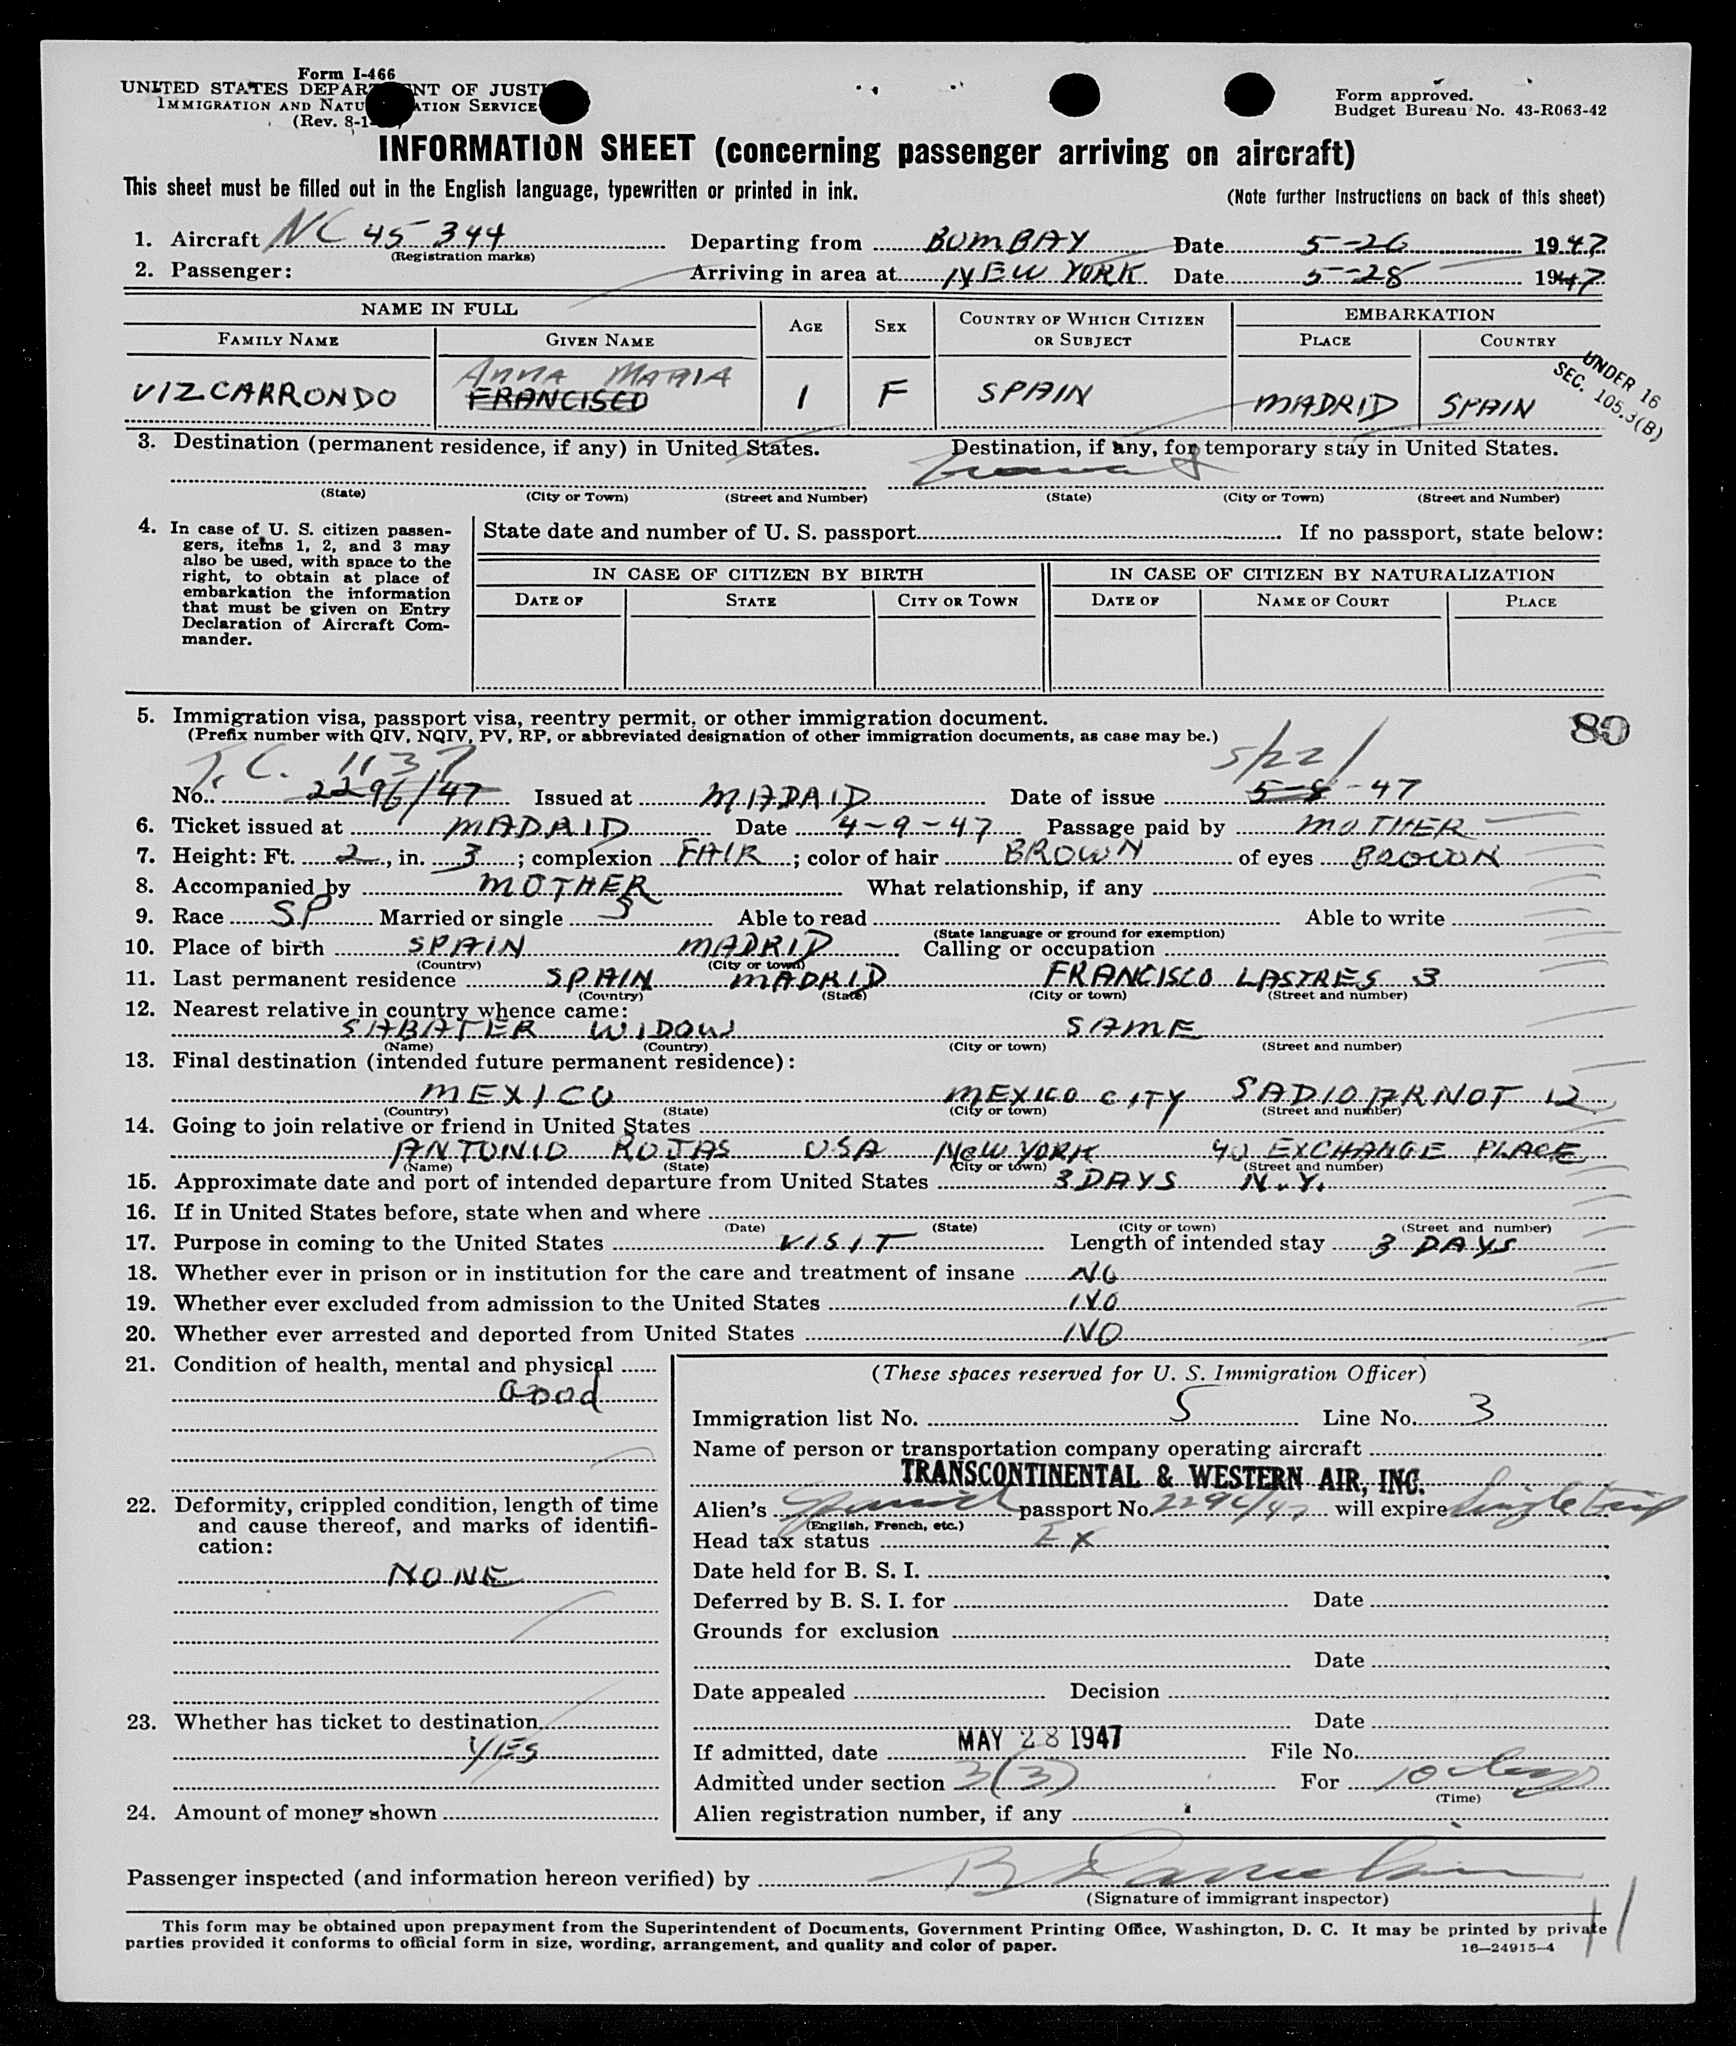 Form I-466
UNITED STATES DEPARTMENT OF JUSTICE
IMMIGRATION AND NATURALIZATION SERVICE
(Rev. 8-1-
Form approved.
Budget Bureau No. 43-R063-42
INFORMATION SHEET (concerning passenger arriving on aircraft)
This sheet must be filled out in the English language, typewritten or printed in ink.
(Note further instructions on back of this sheet)
1. Aircraft NC 45344 Departing from BOMBAY Date 5-26 1947
(Registration marks)
2. Passenger: Arriving in area at NEW YORK Date 5-28 1947
NAME IN FULL AGE SEX COUNTRY OF WHICH CITIZEN OR SUBJECT EMBARKATION
FAMILY NAME GIVEN NAME PLACE COUNTRY
UNDER 16
SEC. 105.3(B)
ANNA MARIA
VIZCARRONDO FRANCISCO 1 F SPAIN MADRID SPAIN
3. Destination (permanent residence, if any) in United States. Destination, if any, for temporary stay in United States.
(State) (City or Town) (Street and Number) (State) (City or Town) (Street and Number)
4. In case of U. S. citizen passen-
gers, items 1, 2, and 3 may
also be used, with space to the
right, to obtain at place of
embarkation the information
that must be given on Entry
Declaration of Aircraft Com-
mander.
State date and number of U. S. passport If no passport, state below:
IN CASE OF CITIZEN BY BIRTH IN CASE OF CITIZEN BY NATURALIZATION
DATE OF STATE CITY OR TOWN DATE OF NAME OF COURT PLACE
5. Immigration visa, passport visa, reentry permit, or other immigration document.
80
(Prefix number with QIV, NQIV, PV, RP, or abbreviated designation of other immigration documents, as case may be.)
T.C. 1137 5/22/
No. 2296/47 Issued at MADRID Date of issue 5-8-47
6. Ticket issued at MADRID Date 4-9-47 Passage paid by MOTHER
7. Height: Ft. 2, in. 3; complexion FAIR; color of hair BROWN of eyes BROWN
8. Accompanied by MOTHER What relationship, if any
9. Race SP Married or single S Able to read Able to write
(State language or ground for exemption)
10. Place of birth SPAIN MADRID Calling or occupation
(Country) (City or town)
11. Last permanent residence SPAIN MADRID FRANCISCO LASTRES 3
(Country) (State) (City or town) (Street and number)
12. Nearest relative in country whence came:
SABATER WIDOW SAME
(Name) (Country) (City or town) (Street and number)
13. Final destination (intended future permanent residence):
MEXICO MEXICO CITY SADIO ARNOT 12
(Country) (State) (City or town) (Street and number)
14. Going to join relative or friend in United States
ANTONIO ROJAS USA NEW YORK 40 EXCHANGE PLACE
(Name) (State) (City or town) (Street and number)
15. Approximate date and port of intended departure from United States 3 DAYS N.Y.
16. If in United States before, state when and where
(Date) (State) (City or town) (Street and number)
17. Purpose in coming to the United States VISIT Length of intended stay 3 DAYS
18. Whether ever in prison or in institution for the care and treatment of insane NO
19. Whether ever excluded from admission to the United States NO
20. Whether ever arrested and deported from United States NO
21. Condition of health, mental and physical
Good
22. Deformity, crippled condition, length of time
and cause thereof, and marks of identifi-
cation:
NONE
23. Whether has ticket to destination
YES
24. Amount of money shown
(These spaces reserved for U. S. Immigration Officer)
Immigration list No. 5 Line No. 3
Name of person or transportation company operating aircraft
TRANSCONTINENTAL & WESTERN AIR, INC.
Alien's Spanish passport No. 2296/47 will expire Single trip
(English, French, etc.)
Head tax status EX
Date held for B. S. I.
Deferred by B. S. I. for Date
Grounds for exclusion
Date
Date appealed Decision
Date
If admitted, date MAY 28 1947 File No.
Admitted under section 3(3) For 10 days
(Time)
Alien registration number, if any
Passenger inspected (and information hereon verified) by
(Signature of immigrant inspector)
This form may be obtained upon prepayment from the Superintendent of Documents, Government Printing Office, Washington, D. C. It may be printed by private
parties provided it conforms to official form in size, wording, arrangement, and quality and color of paper.
16—24915-4